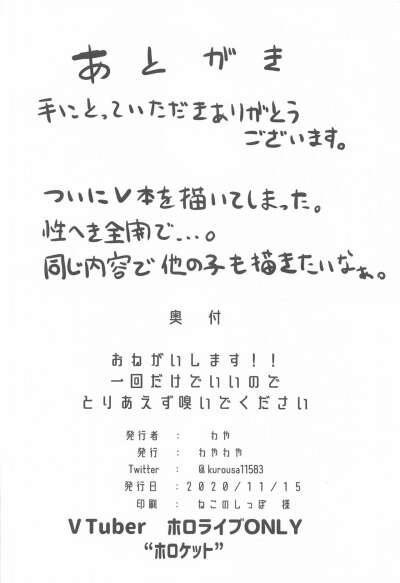 あとがき
手にとっていただきありがとう
ございます。
ついにV本を描いてしまった。
性へき全開で...。
同じ内容で他の子も描きたいなぁ。
奥付
おねがいします!!
一回だけでいいので
とりあえず嗅いでください
発行者 : わや
発行 : わやわや
Twitter : @kurousa11583
発行日 : 2020/11/15
印刷 : ねこのしっぽ 様
VTuber ホロライブONLY
“ホロケット”